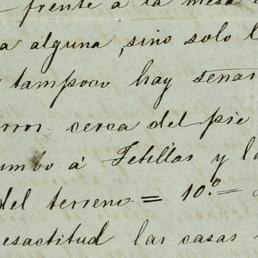 frente a la mesa
a alguna, sino solo l
tampoco hay señas
cerca del pie
umbo á Tetillas y la
del terreno = 10.º =
esactitud las casas